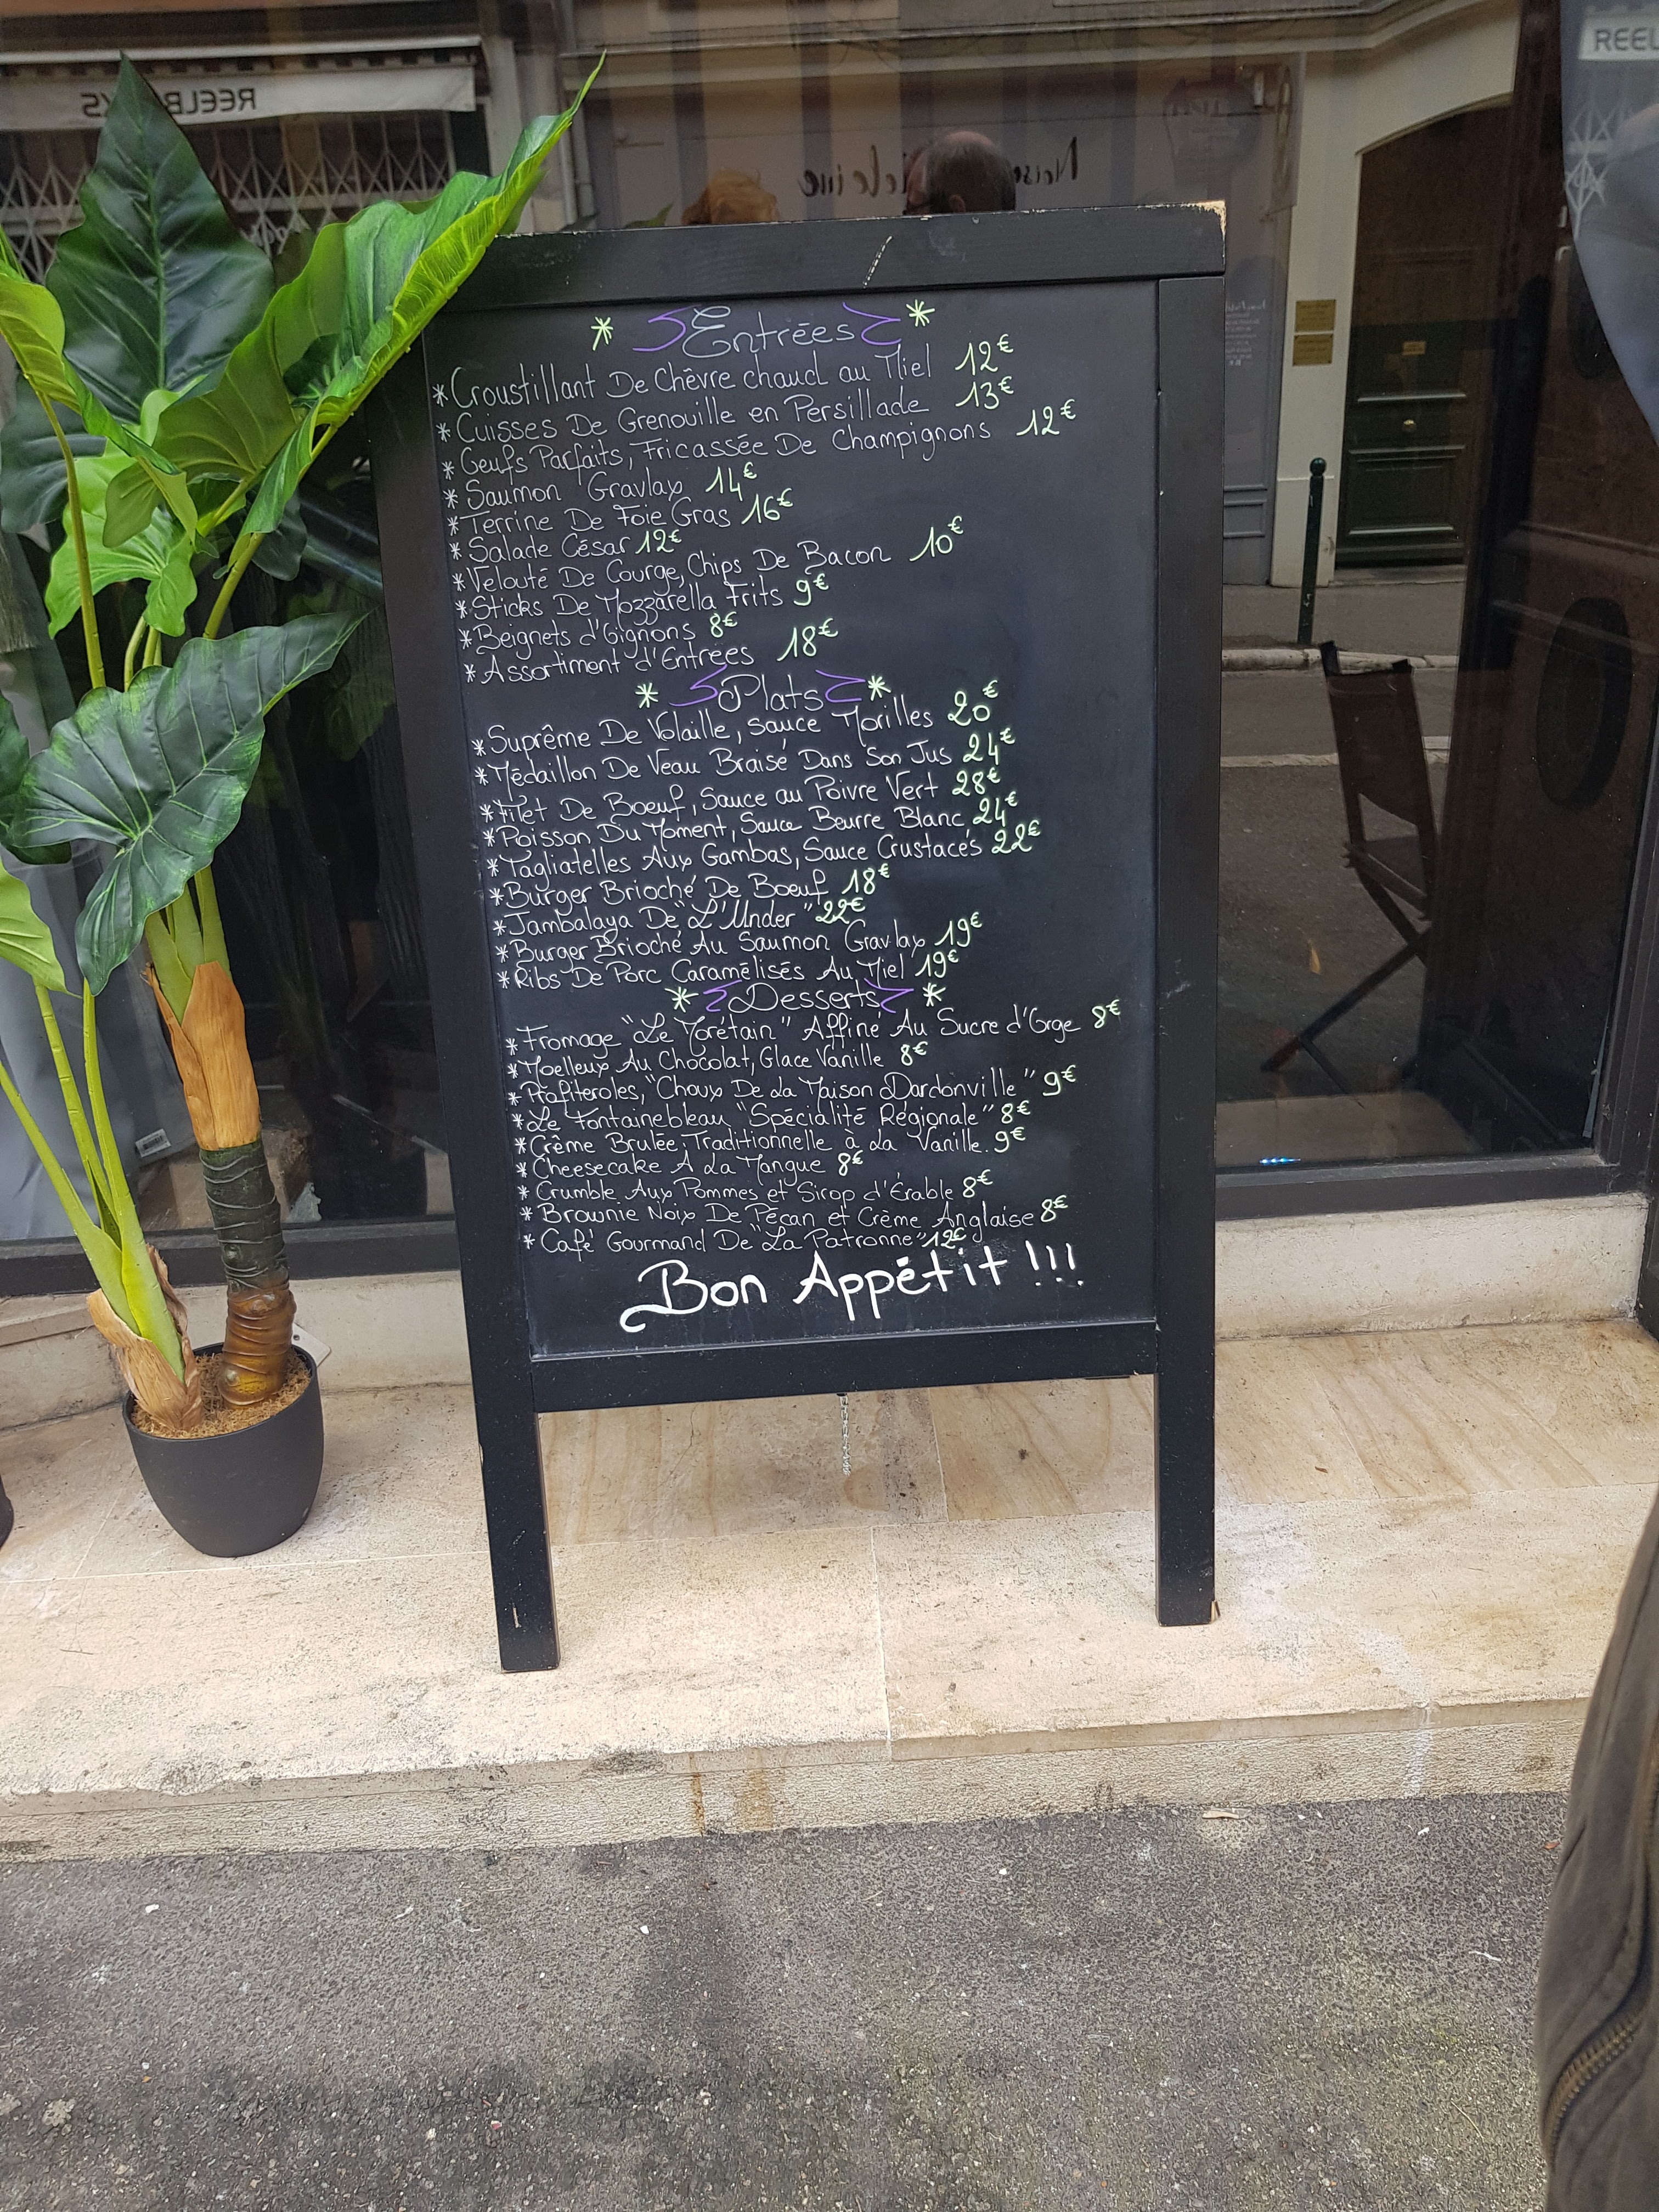 REELBOOKS
REEL
* Entrées *
* Croustillant De Chêvre chaud au Miel 12€
* Cuisses De Grenouille en Persillade 13€
* Oeufs Parfaits, Fricassée De Champignons 12€
* Saumon Gravlax 14€
* Terrine De Foie Gras 16€
* Salade César 12€
* Velouté De Courge, Chips De Bacon 10€
* Sticks De Mozzarella Frits 9€
* Beignets d'Oignons 8€
* Assortiment d'Entrées 18€
* Plats *
* Suprême De Volaille, Sauce Morilles 20€
* Médaillon De Veau Braisé Dans Son Jus 24€
* Filet De Boeuf, Sauce au Poivre Vert 28€
* Poisson Du Moment, Sauce Beurre Blanc 24€
* Tagliatelles Aux Gambas, Sauce Crustacés 22€
* Burger Brioché De Boeuf 18€
* Jambalaya De "L'Under" 22€
* Burger Brioché Au Saumon Gravlax 19€
* Ribs De Porc Caramélisés Au Miel 19€
* Desserts *
* Fromage "Le Morétain" Affiné Au Sucre d'Orge 8€
* Moelleux Au Chocolat, Glace Vanille 8€
* Profiteroles, "Choux De La Maison Dardonville" 9€
* Le Fontainebleau "Spécialité Régionale" 8€
* Crême Brulée Traditionnelle à La Vanille. 9€
* Cheesecake A La Mangue 8€
* Crumble Aux Pommes et Sirop d'Érable 8€
* Brownie Noix De Pécan et Crème Anglaise 8€
* Café Gourmand De "La Patronne" 12€
Bon Appétit !!!